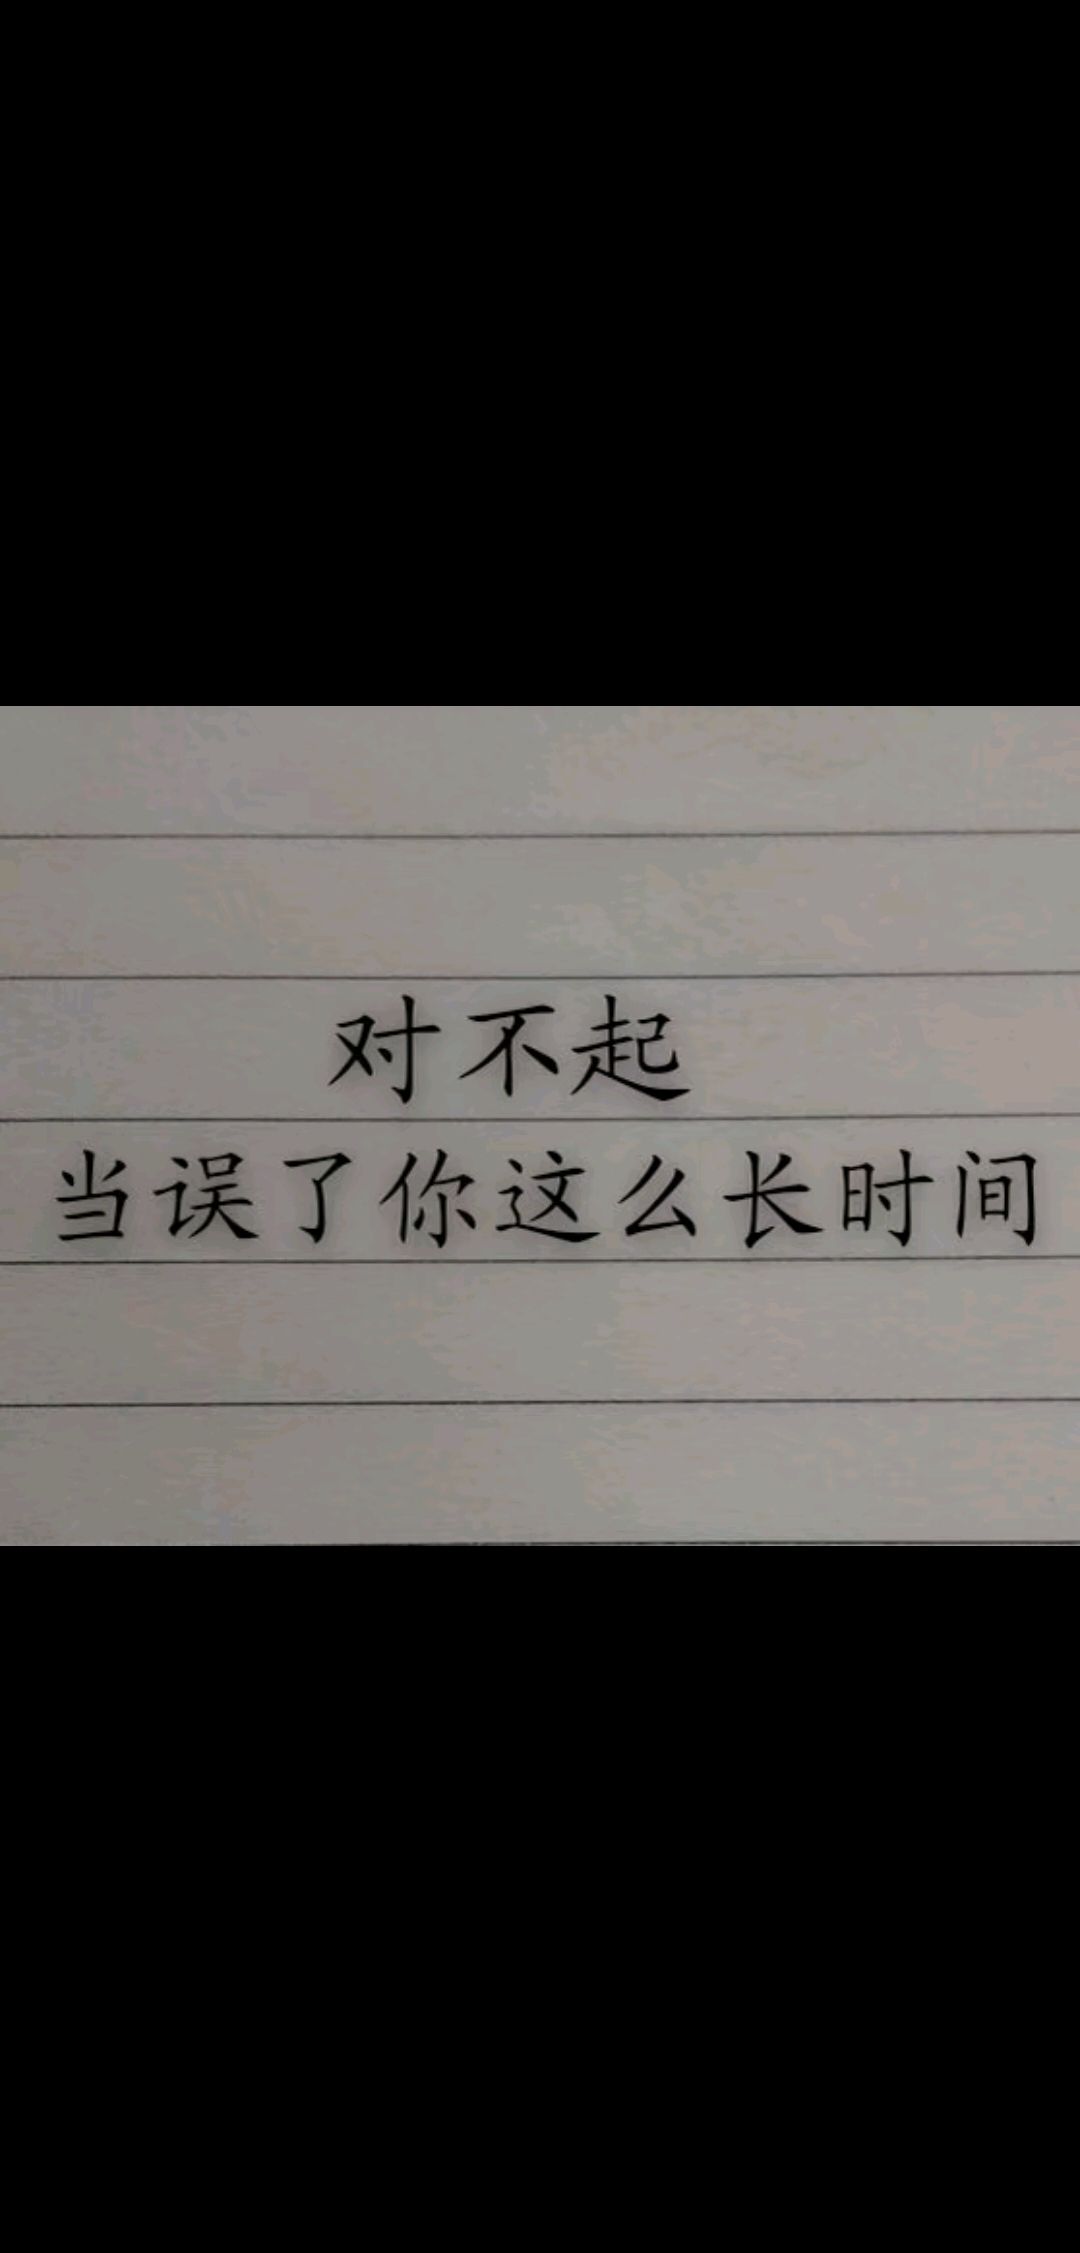 对不起
当误了你这么长时间